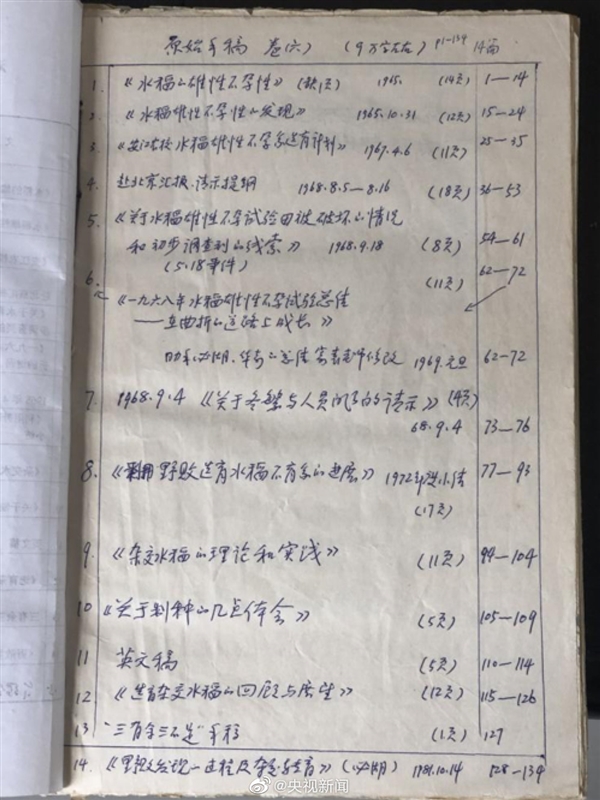 原始手稿 卷(六) (9万字左右) P1—134 14篇
1. 《水稻的雄性不孕性》(缺1页) 1965. (14页) 1—14
2. 《水稻雄性不孕性的发现》 1965.10.31 (12页) 15—24
3. 《安江农校水稻雄性不孕系选育计划》 1967.4.6 (11页) 25—35
4. 赴北京汇报.请示提纲 1968.8.5—8.16 (18页) 36—53
5. 《关于水稻雄性不孕试验田被破坏的情况
和初步调查到的线索》 1968.9.18 (8页) 54—61
(5.18事件)
6. (11页) 62—72
《一九六八年水稻雄性不孕试验总结
——在曲折的道路上成长》
助手 的总结 老师修改 1969.元旦 62—72
7. 1968.9.4 《关于冬繁与人员 的请示》(4页)
68.9.4 73—76
8. 《利用野败选育水稻不育系的进展》 1972年 (17页) 77—93
9. 《杂交水稻的理论和实践》 (11页) 94—104
10 《关于制种的几点体会》 (5页) 105—109
11 英文稿 (5页) 110—114
12 《选育杂交水稻的回顾与展望》 (12页) 115—126
13 "三有余三不足"手稿 (1页) 127
14. 《野败发现 过程及 》 1981.10.14 128—134
@央视新闻